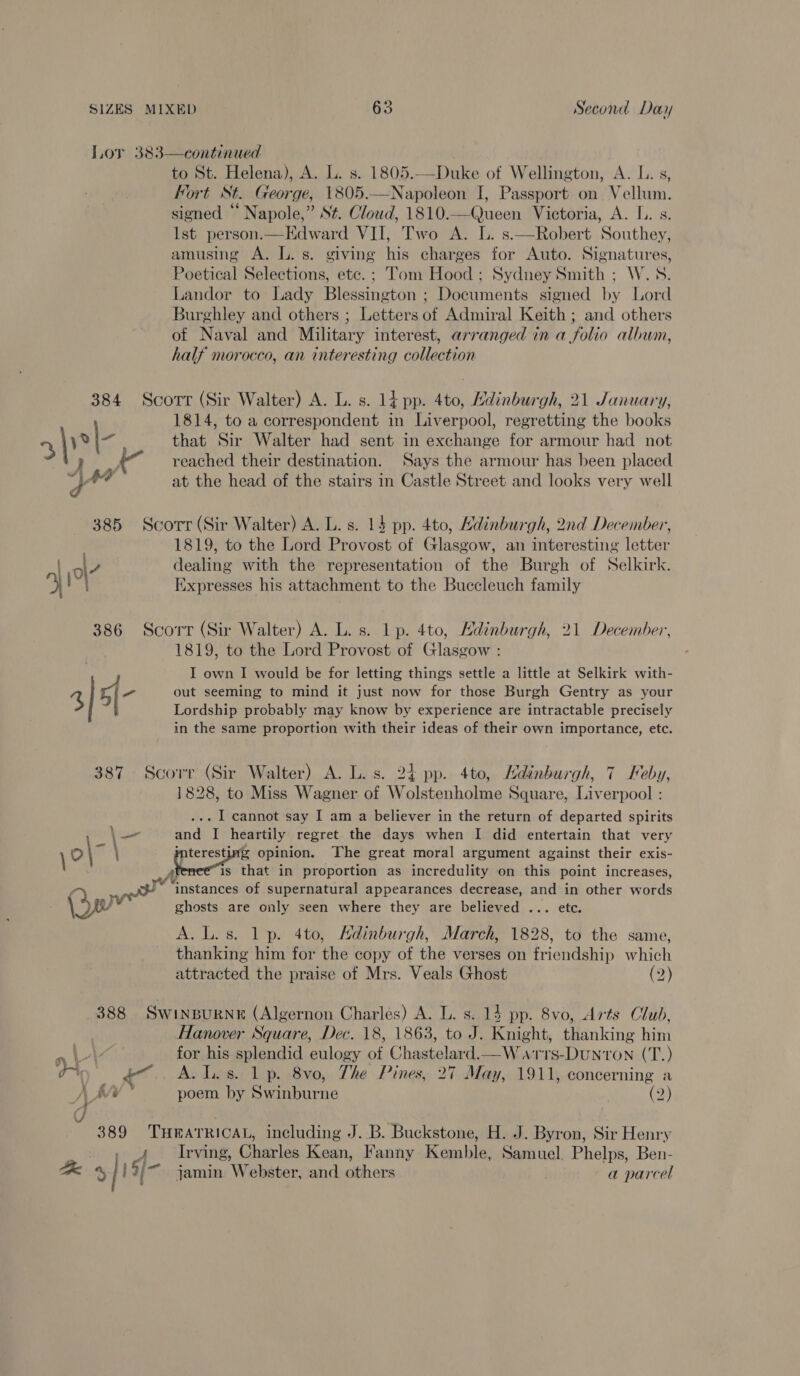 SIZES MIXED 63 Second Day
LOT 383—continued
to St. Helena), A. L. s. 1805.—Duke of Wellington, A. L. s,
Fort St. George, 1805.—Napoleon I, Passport on Vellum.
signed “Napole,” St. Cloud, 1810.—Queen Victoria, A. L. s.
1st person.—Edward VII, Two A. L. s.—Robert Southey,
amusing A. L. s. giving his charges for Auto. Signatures,
Poetical Selections, etc.; Tom Hood; Sydney Smith; W. S.
Landor to Lady Blessington; Documents signed by Lord
Burghley and others; Letters of Admiral Keith; and others
of Naval and Military interest, arranged in a folio album,
half morocco, an interesting collection
384 SCOTT (Sir Walter) A. L. s. 1¼ pp. 4to, Edinburgh, 21 January,
1814, to a correspondent in Liverpool, regretting the books
that Sir Walter had sent in exchange for armour had not
reached their destination. Says the armour has been placed
at the head of the stairs in Castle Street and looks very well
385 SCOTT (Sir Walter) A. L. s. 1½ pp. 4to, Edinburgh, 2nd December,
1819, to the Lord Provost of Glasgow, an interesting letter
dealing with the representation of the Burgh of Selkirk.
Expresses his attachment to the Buccleuch family
3/10/-
386 SCOTT (Sir Walter) A. L. s. 1 p. 4to, Edinburgh, 21 December,
1819, to the Lord Provost of Glasgow:
I own I would be for letting things settle a little at Selkirk with-
out seeming to mind it just now for those Burgh Gentry as your
3/5/-
Lordship probably may know by experience are intractable precisely
in the same proportion with their ideas of their own importance, etc.
387 SCOTT (Sir Walter) A. L. s. 2¼ pp. 4to, Edinburgh, 7 Feby,
1828, to Miss Wagner of Wolstenholme Square, Liverpool:
... I cannot say I am a believer in the return of departed spirits
and I heartily regret the days when I did entertain that very
interesting opinion. The great moral argument against their exis-
tence is that in proportion as incredulity on this point increases,
instances of supernatural appearances decrease, and in other words
ghosts are only seen where they are believed ... etc.
A. L. s. 1 p. 4to, Edinburgh, March, 1828, to the same,
thanking him for the copy of the verses on friendship which
attracted the praise of Mrs. Veals Ghost (2)
388 SWINBURNE (Algernon Charles) A. L. s. 1½ pp. 8vo, Arts Club,
Hanover Square, Dec. 18, 1863, to J. Knight, thanking him
for his splendid eulogy of Chastelard.—WATTS-DUNTON (T.)
A. L. s. 1 p. 8vo, The Pines, 27 May, 1911, concerning a
poem by Swinburne (2)
389 THEATRICAL, including J. B. Buckstone, H. J. Byron, Sir Henry
Irving, Charles Kean, Fanny Kemble, Samuel Phelps, Ben-
jamin Webster, and others a parcel